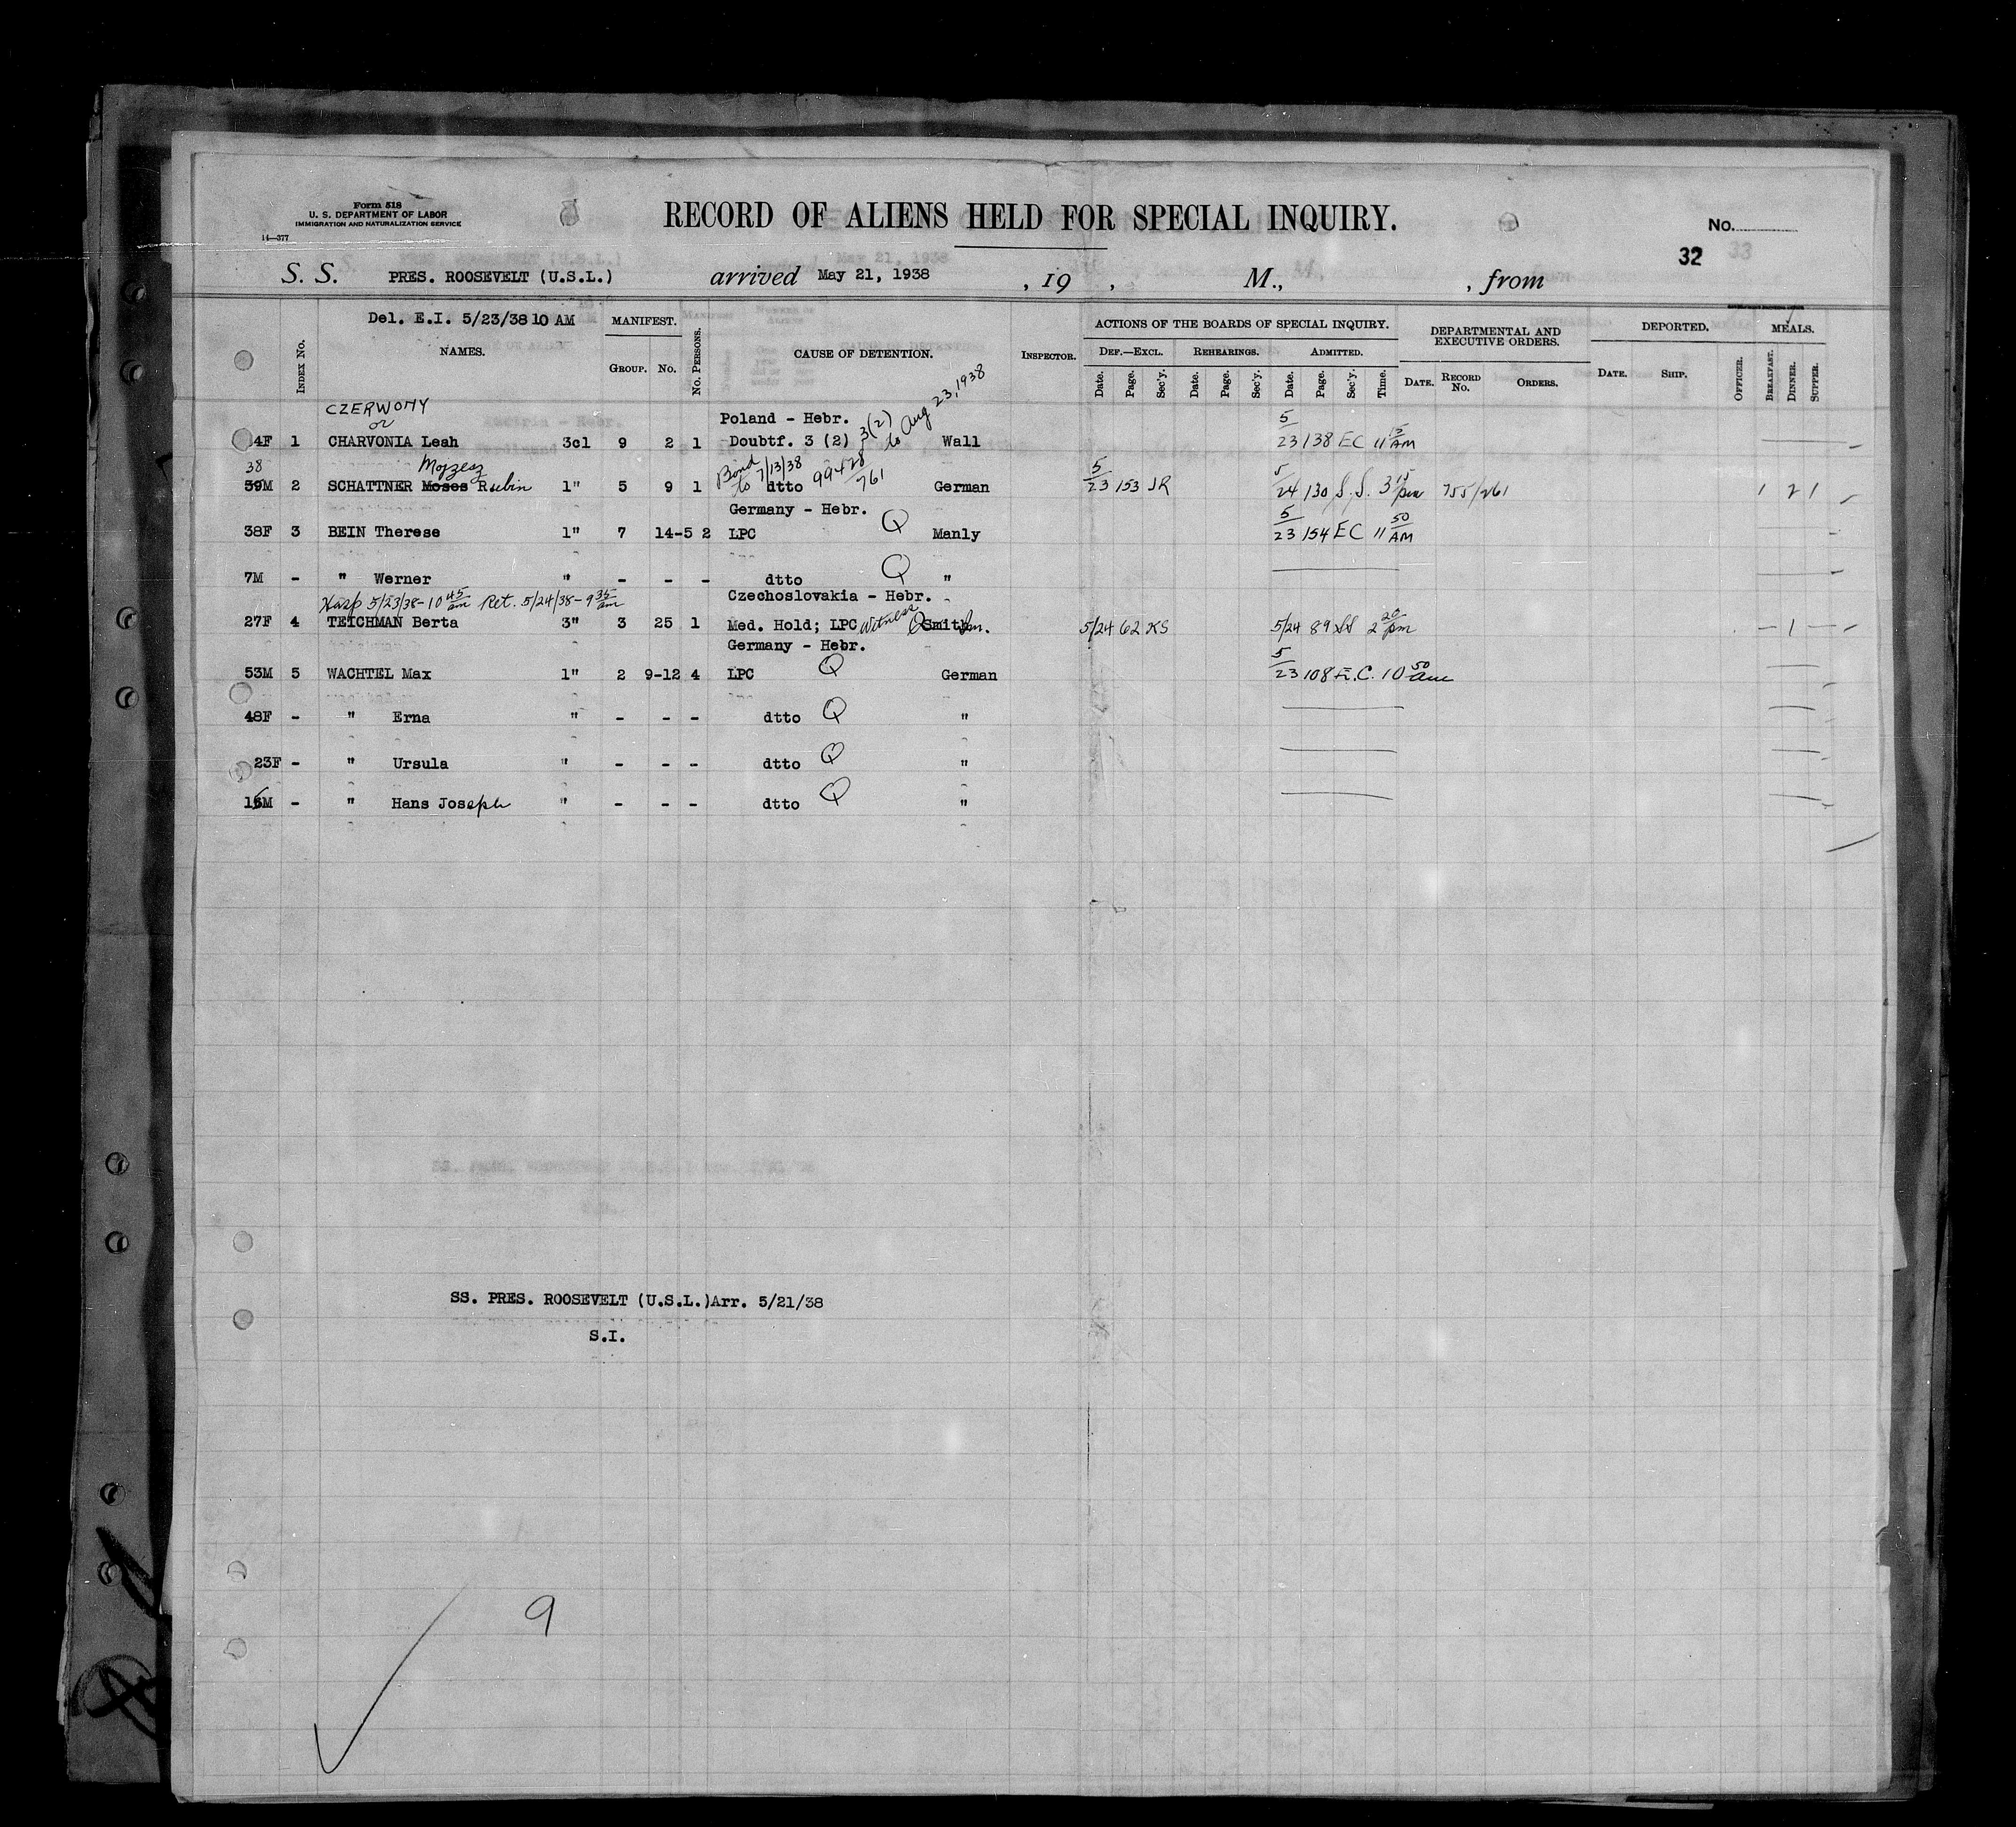 Form 518
U. S. DEPARTMENT OF LABOR
IMMIGRATION AND NATURALIZATION SERVICE
14—377
RECORD OF ALIENS HELD FOR SPECIAL INQUIRY.
No.
32
S. S. PRES. ROOSEVELT (U.S.L.) arrived May 21, 1938 , 19 , M., , from
Del. E.I. 5/23/38 10 AM
INDEX No. NAMES. MANIFEST. GROUP. No. No. PERSONS. CAUSE OF DETENTION. INSPECTOR. ACTIONS OF THE BOARDS OF SPECIAL INQUIRY. DEF.—EXCL. Date. Page. Sec'y. REHEARINGS. Date. Page. Sec'y. ADMITTED. Date. Page. Sec'y. Time. DEPARTMENTAL AND EXECUTIVE ORDERS. DATE. RECORD No. ORDERS. DEPORTED. DATE. SHIP. OFFICER. MEALS. BREAKFAST. DINNER. SUPPER.
CZERWONY or Poland - Hebr. 3(2) to Aug 23, 1938
4F 1 CHARVONIA Leah 3cl 9 2 1 Doubtf. 3 (2) Wall 5/23 138 EC 11 15 AM
38 Mojzesz Bond to 7/13/38 99428/761
39M 2 SCHATTNER Moses Rubin 1" 5 9 1 dtto German 5/23 153 JR 5/24 130 S.S. 3 15 pm 755/261 1 2 1
Germany - Hebr.
38F 3 BEIN Therese 1" 7 14-5 2 LPC Q Manly 5/23 154 EC 11 50 AM
7M - " Werner " - - - dtto Q "
Hosp 5/23/38 - 10 45 am Ret. 5/24/38 - 9 35 am Czechoslovakia - Hebr.
27F 4 TEICHMAN Berta 3" 3 25 1 Med. Hold; LPC Witness Smith 5/24 62 KS 5/24 89 SS 2 20 pm - 1 -
Germany - Hebr.
53M 5 WACHTEL Max 1" 2 9-12 4 LPC Q German 5/23 108 E.C. 10 50 am
48F - " Erna " - - - dtto Q "
23F - " Ursula " - - - dtto Q "
16M - " Hans Joseph " - - - dtto Q "
SS. PRES. ROOSEVELT (U.S.L.)Arr. 5/21/38
S.I.
9